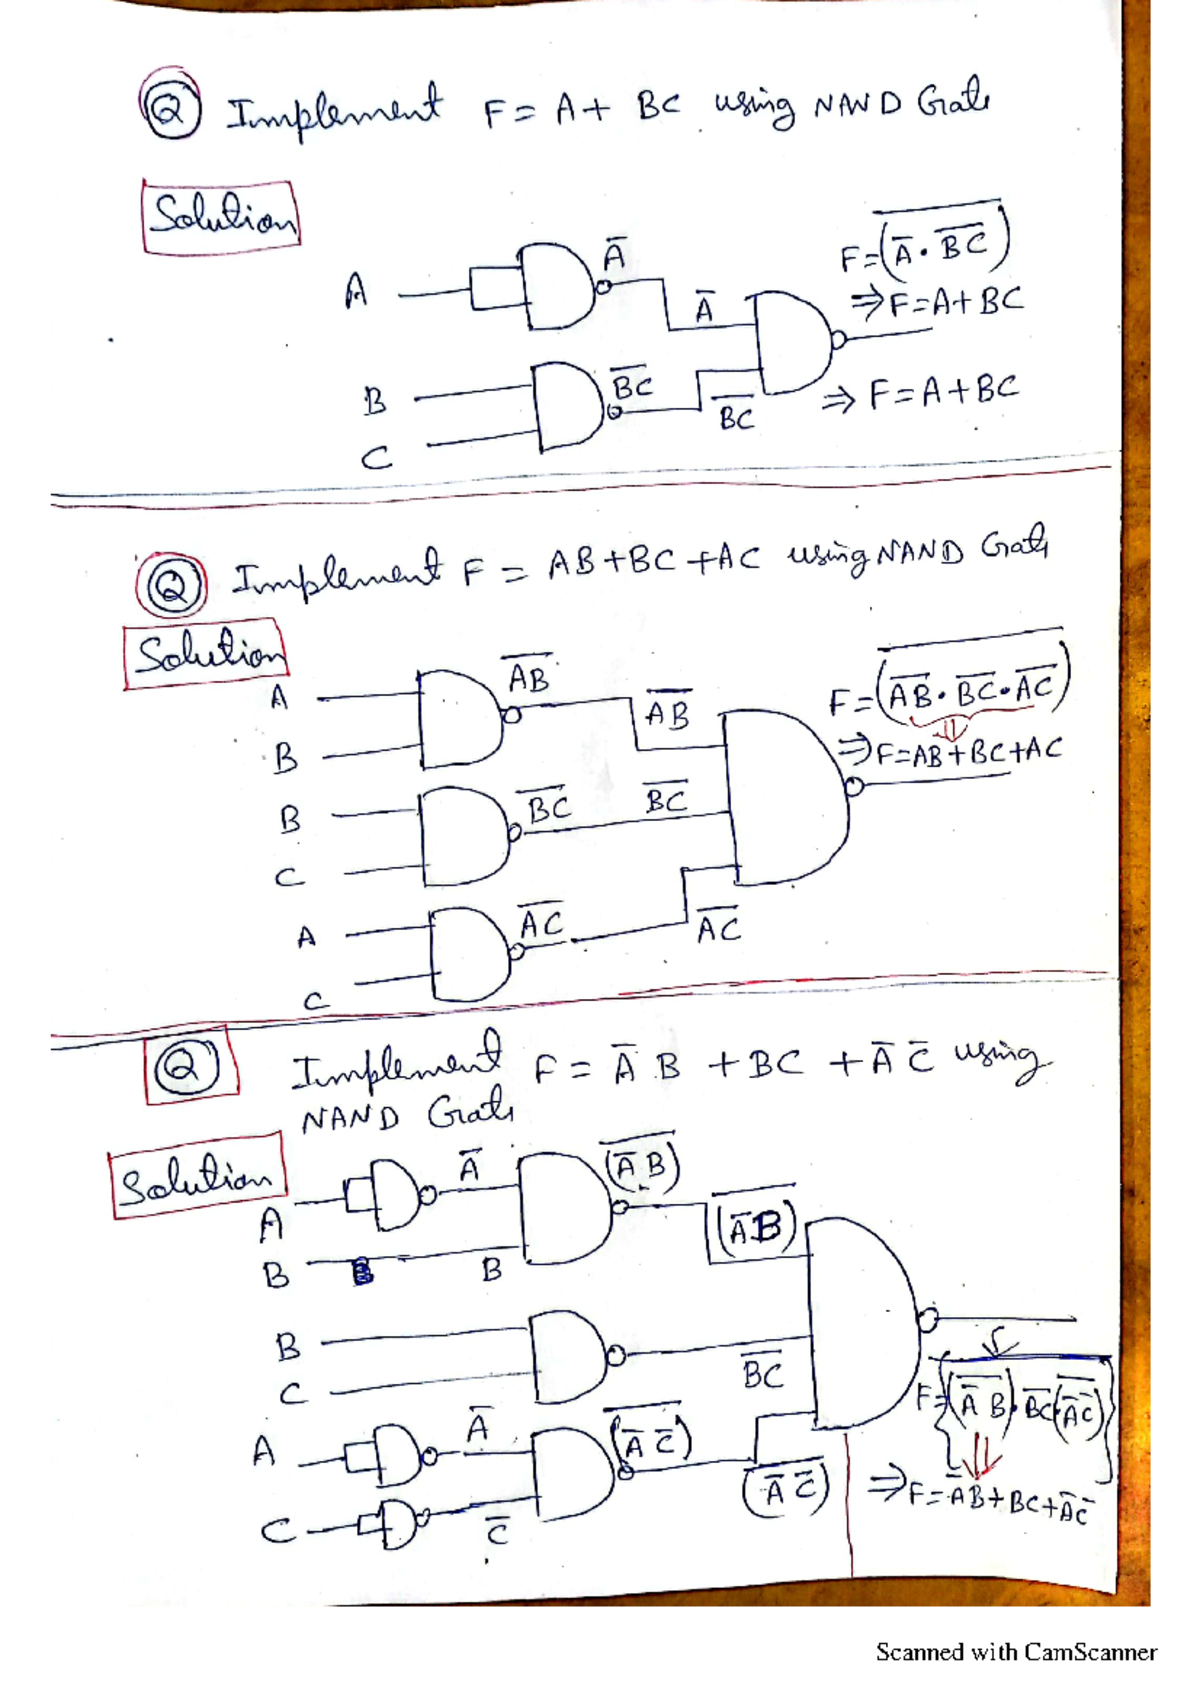 Q Implement F = A + BC using NAND Gate
Solution
A
A̅
A̅
B
C
B̅C̅
B̅C̅
F = (A̅ · B̅C̅)
⇒ F = A + BC
⇒ F = A + BC
Q Implement F = AB + BC + AC using NAND Gate
Solution
A
B
A̅B̅
A̅B̅
B
C
B̅C̅
B̅C̅
A
C
A̅C̅
A̅C̅
F = (A̅B̅ · B̅C̅ · A̅C̅)
⇒ F = AB + BC + AC
Q Implement F = A̅ B + BC + A̅ C̅ using
NAND Gate
Solution
A
A̅
B
B
(A̅ B)
(A̅B)
B
C
B̅C̅
A
A̅
C
C̅
(A̅ C̅)
(A̅ C̅)
F = (A̅ B) · B̅C̅ (A̅C̅)
⇒ F = A̅B + BC + A̅C̅
Scanned with CamScanner